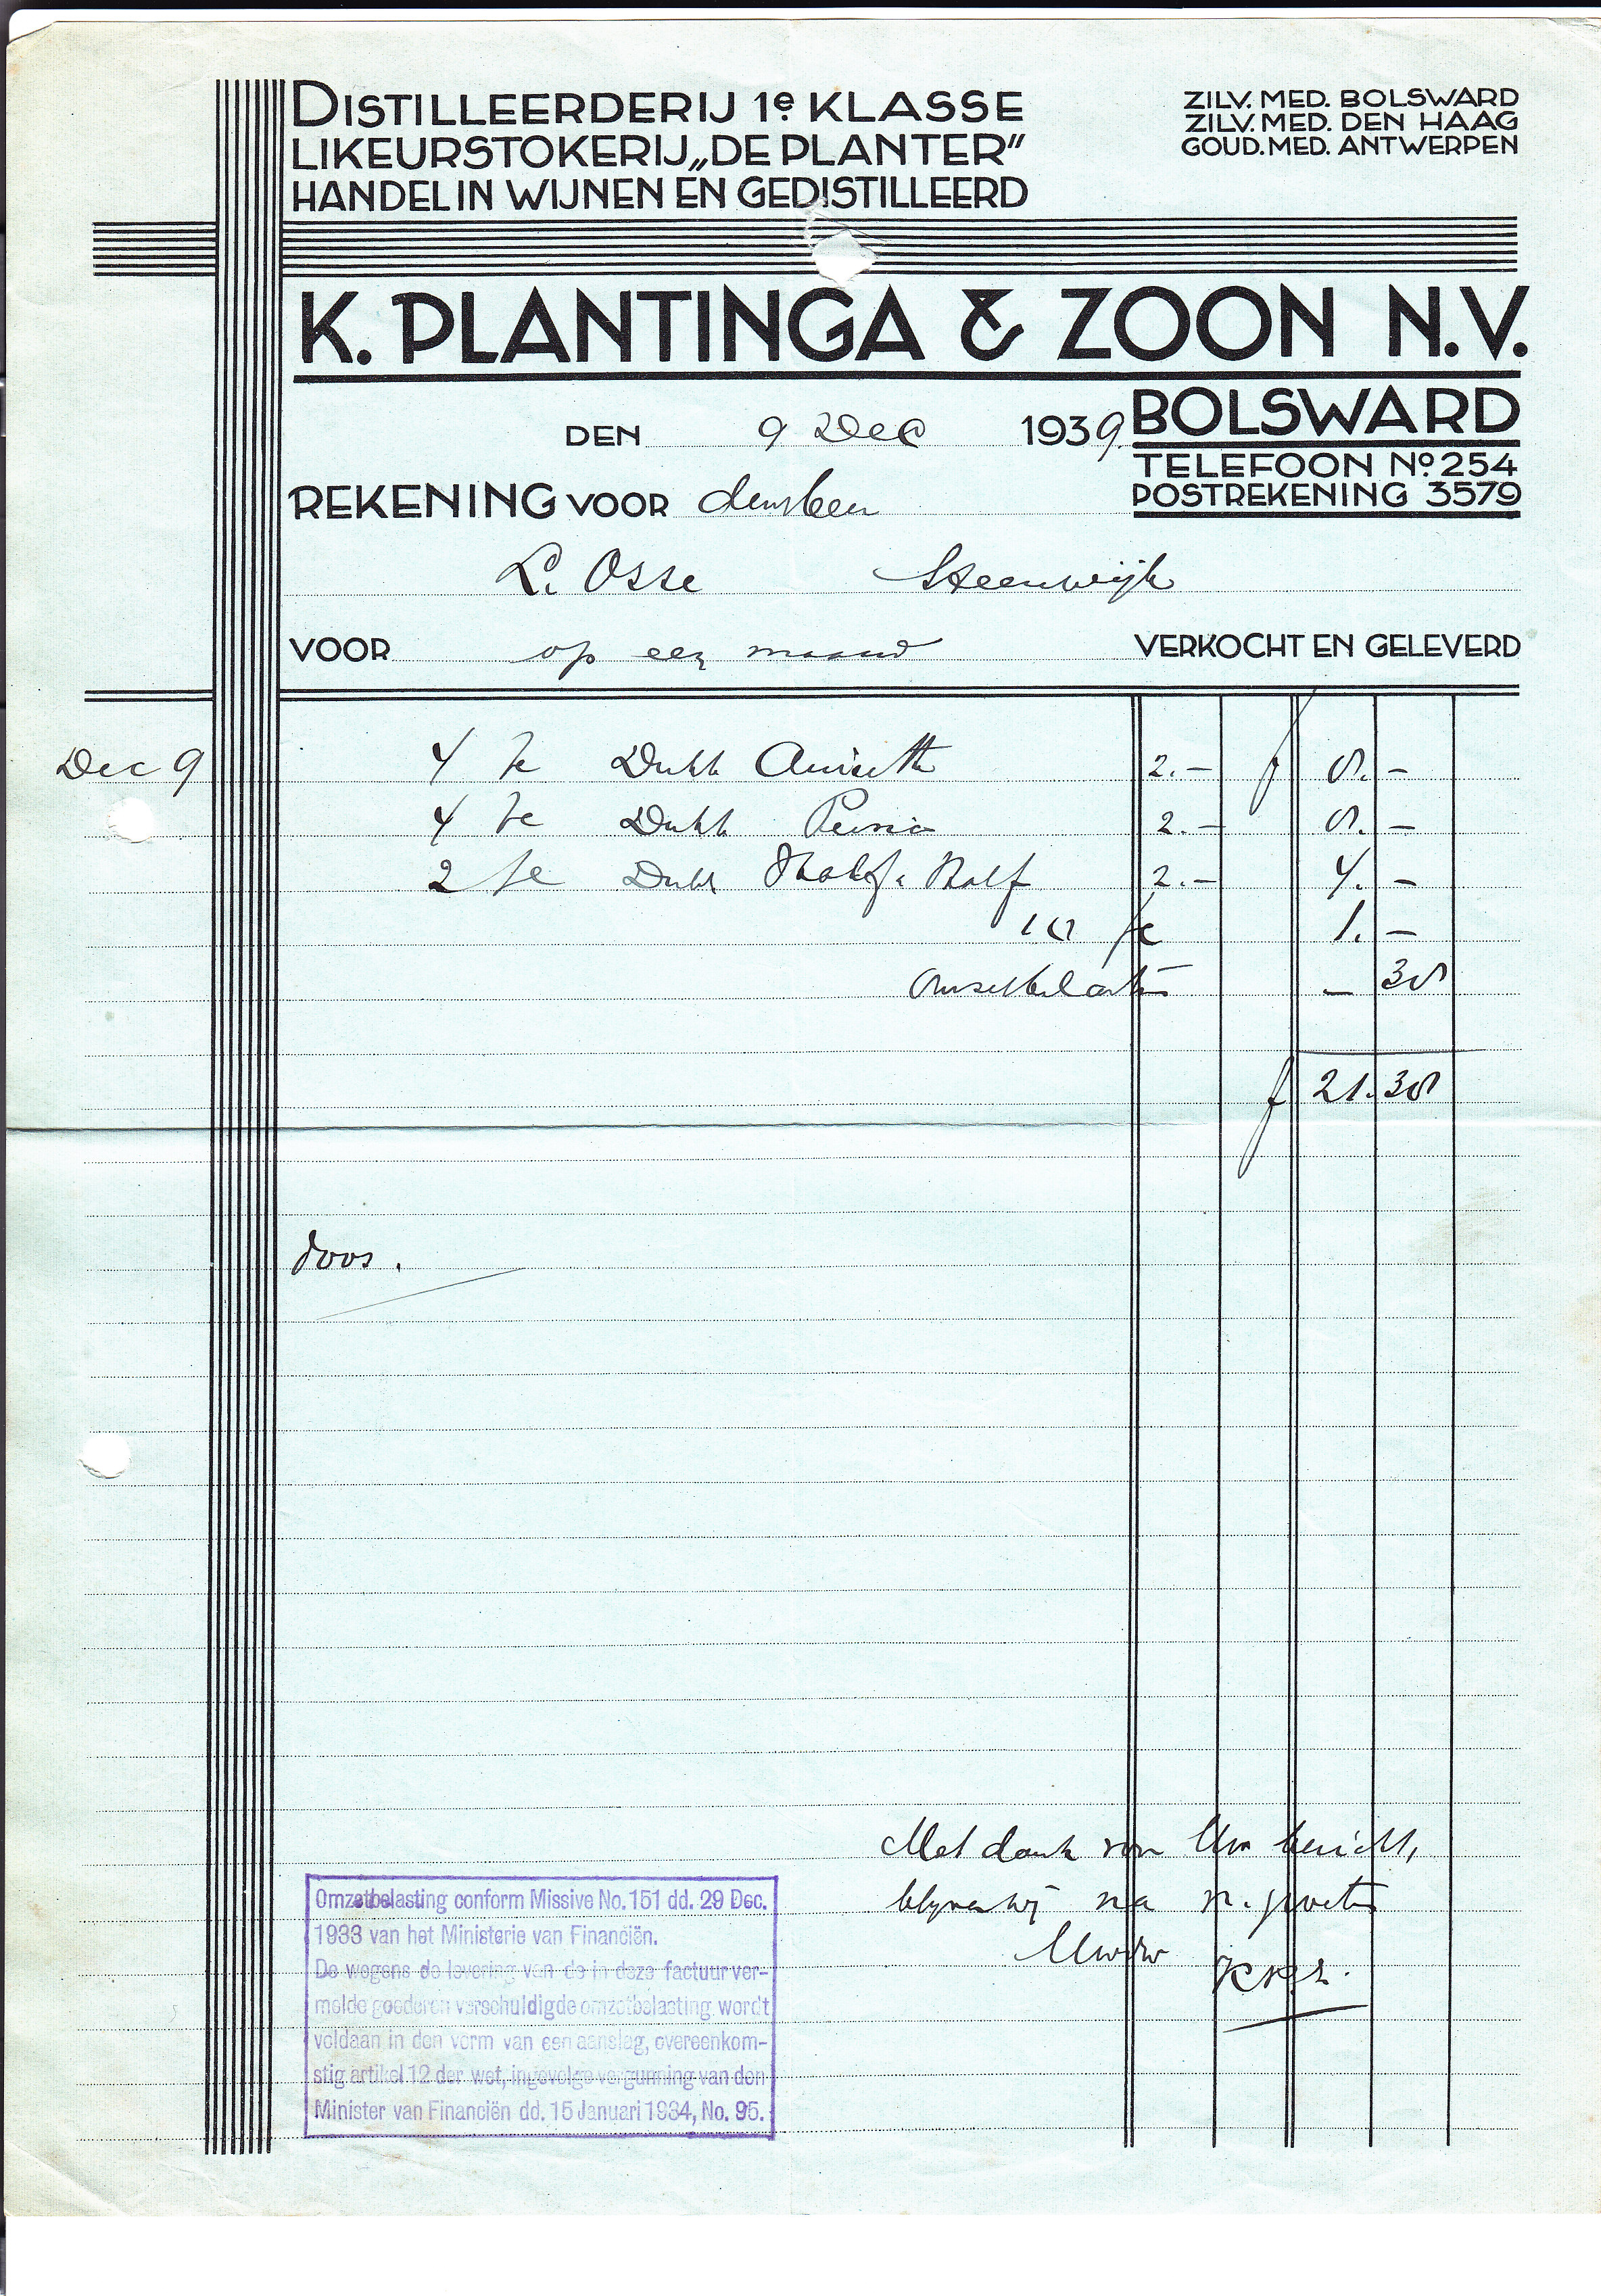 DISTILLEERDERIJ 1e KLASSE
LIKEURSTOKERIJ „DE PLANTER”
HANDEL IN WIJNEN EN GEDISTILLEERD
ZILV. MED. BOLSWARD
ZILV. MED. DEN HAAG
GOUD. MED. ANTWERPEN
K. PLANTINGA & ZOON N.V.
BOLSWARD
TELEFOON No 254
POSTREKENING 3579
DEN 9 Dec 1939.
REKENING VOOR den Heer
L. Osse Steenwijk
VOOR op een maand VERKOCHT EN GELEVERD
Dec 9 4 fe Dubb Anisette 2.- f 8.-
4 fe Dubb Persico 2.- 8.-
2 fe Dubb Half & Half 2.- 4.-
10 fe 1.-
Omzetbelasting - 38
f 21.38
doos.
Met dank voor Uw bericht,
blijven wij na vr. groeten
Uwdw
Omzetbelasting conform Missive No. 151 dd. 29 Dec.
1933 van het Ministerie van Financiën.
De wegens de levering van de in deze factuur ver-
melde goederen verschuldigde omzetbelasting wordt
voldaan in den vorm van een aanslag, overeenkom-
stig artikel 12 der wet, ingevolge vergunning van den
Minister van Financiën dd. 15 Januari 1934, No. 95.